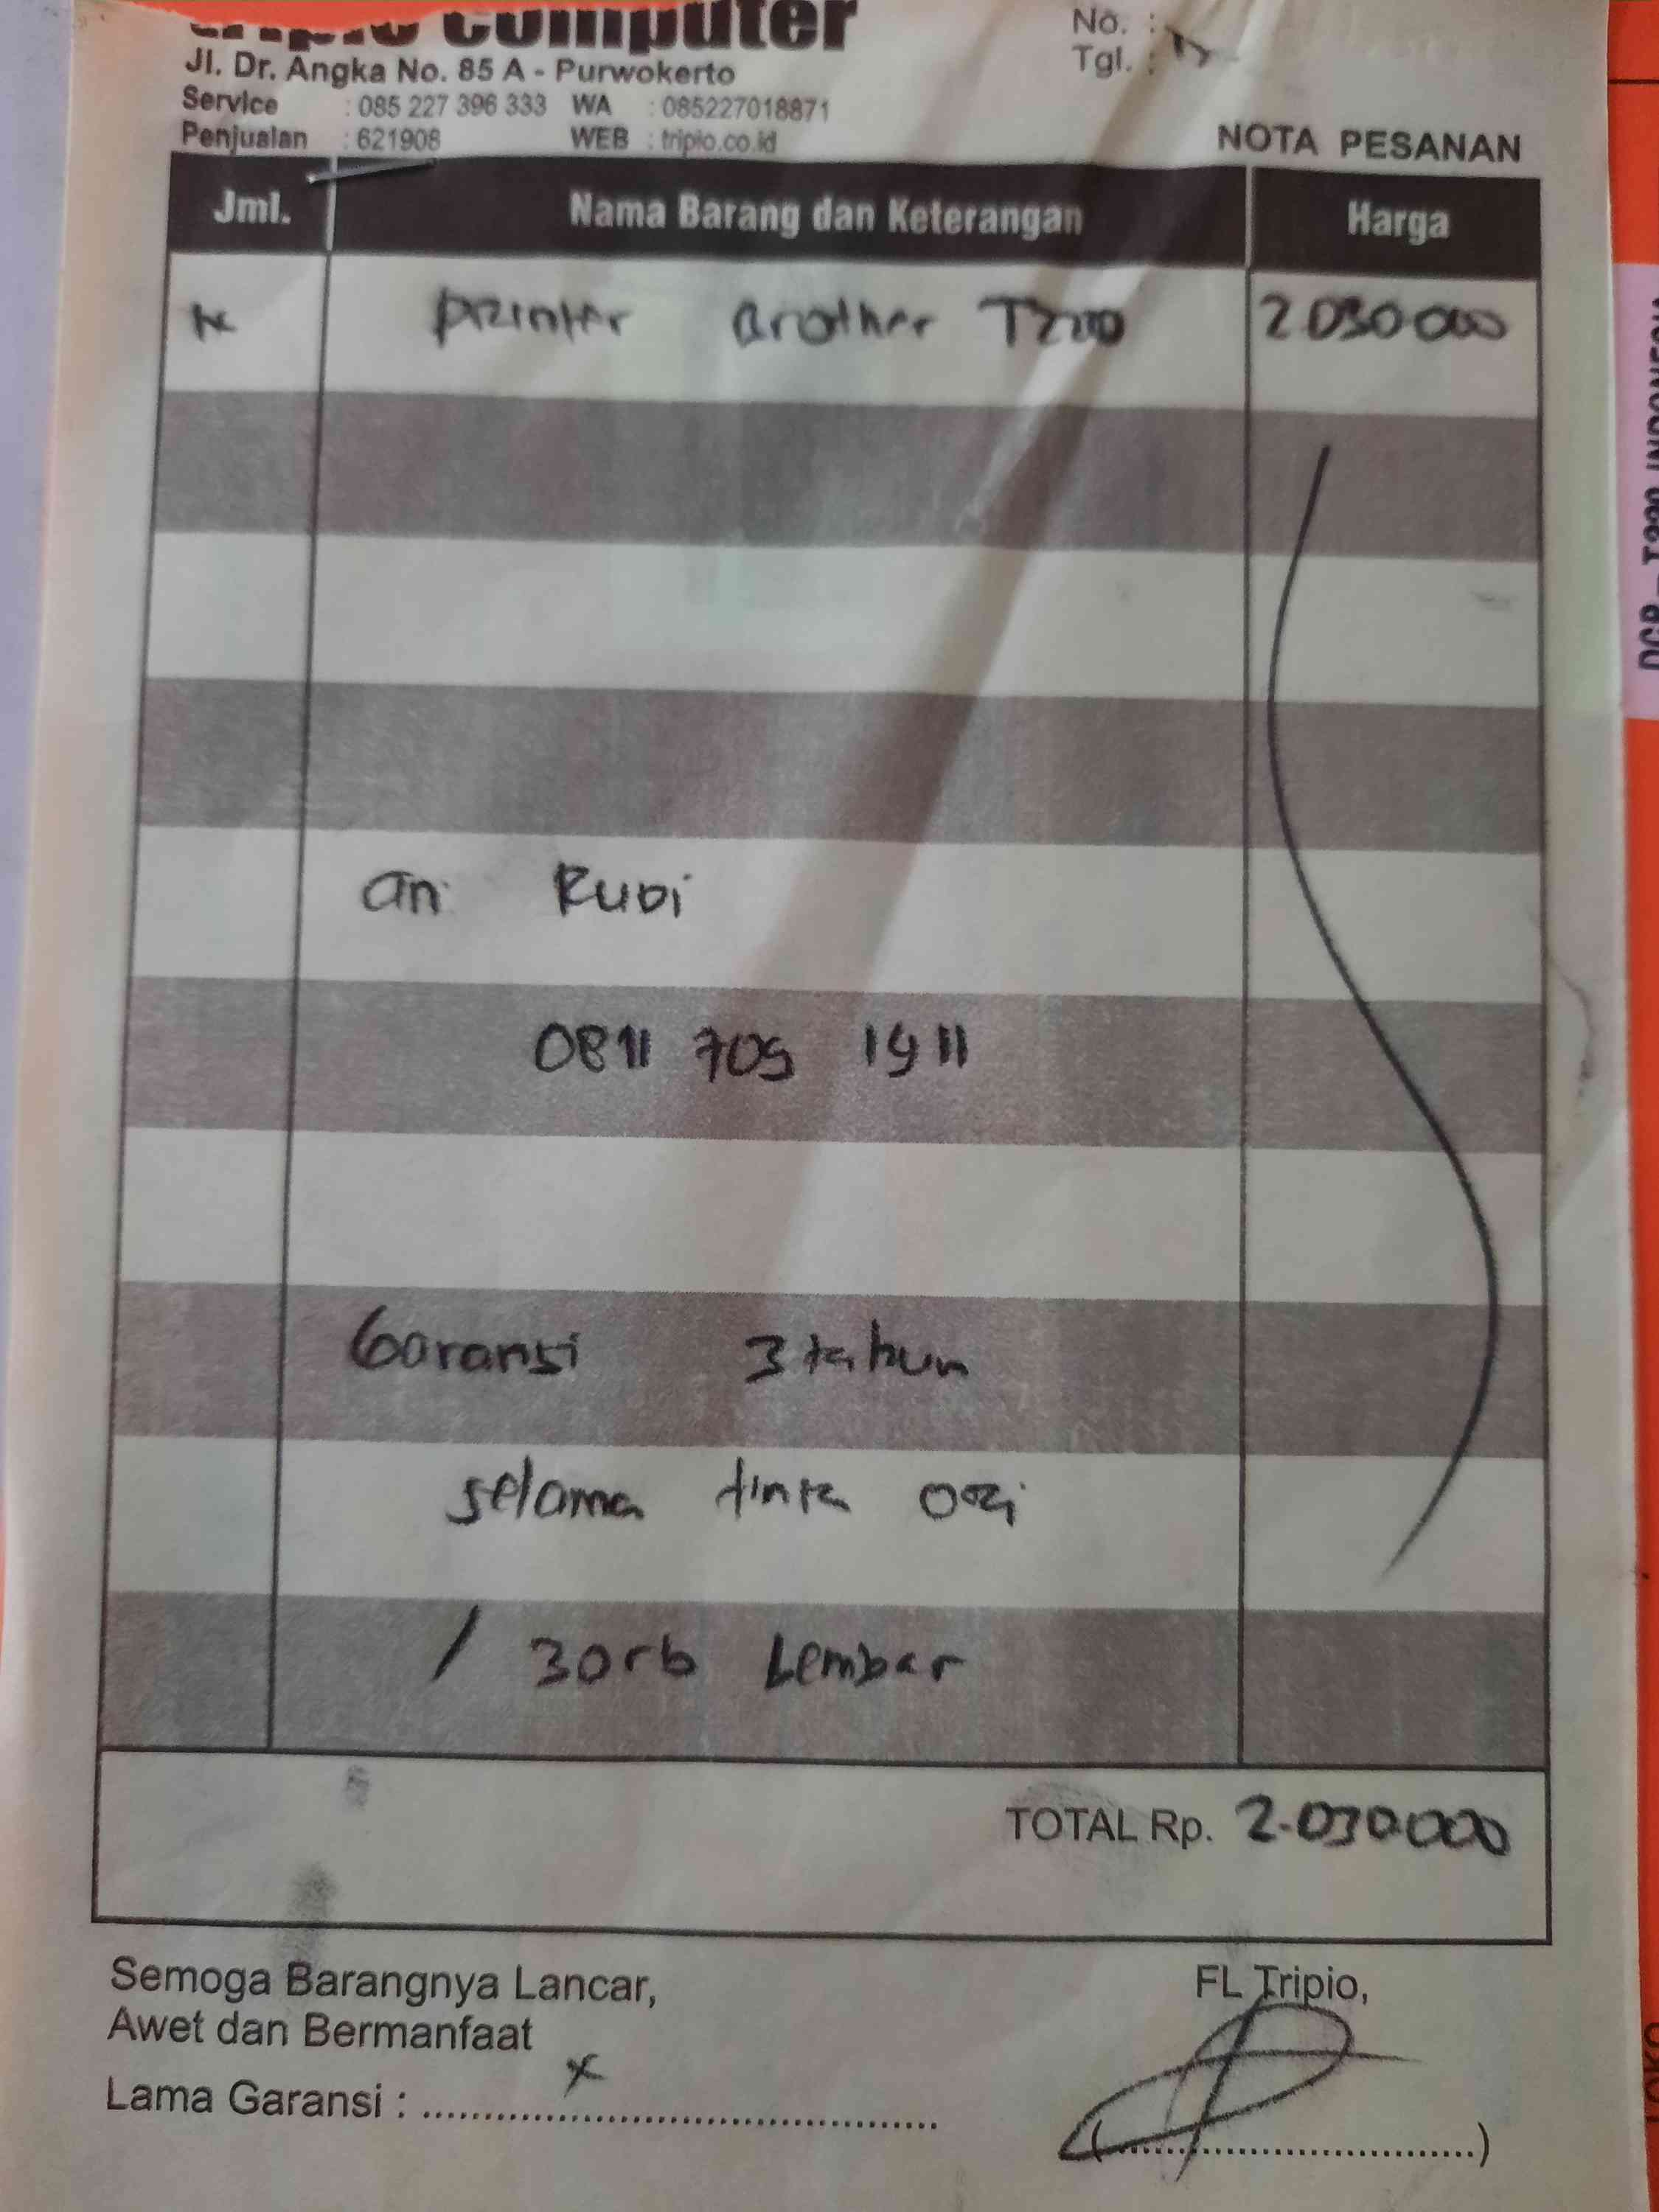 tripio computer
Jl. Dr. Angka No. 85 A - Purwokerto
Service : 085 227 396 333 WA : 085227018871
Penjualan : 621908 WEB : tripio.co.id
No. :
Tgl. :
NOTA PESANAN
Jml. Nama Barang dan Keterangan Harga
printer Brother T220 2030000
an Rubi
0811 705 1911
Garansi 3 tahun
selama tinta ori
/ 30rb Lembar
TOTAL Rp. 2.030.000
Semoga Barangnya Lancar,
Awet dan Bermanfaat
Lama Garansi : x
FL Tripio,
(..............................)
DCP-T220 INDONESIA